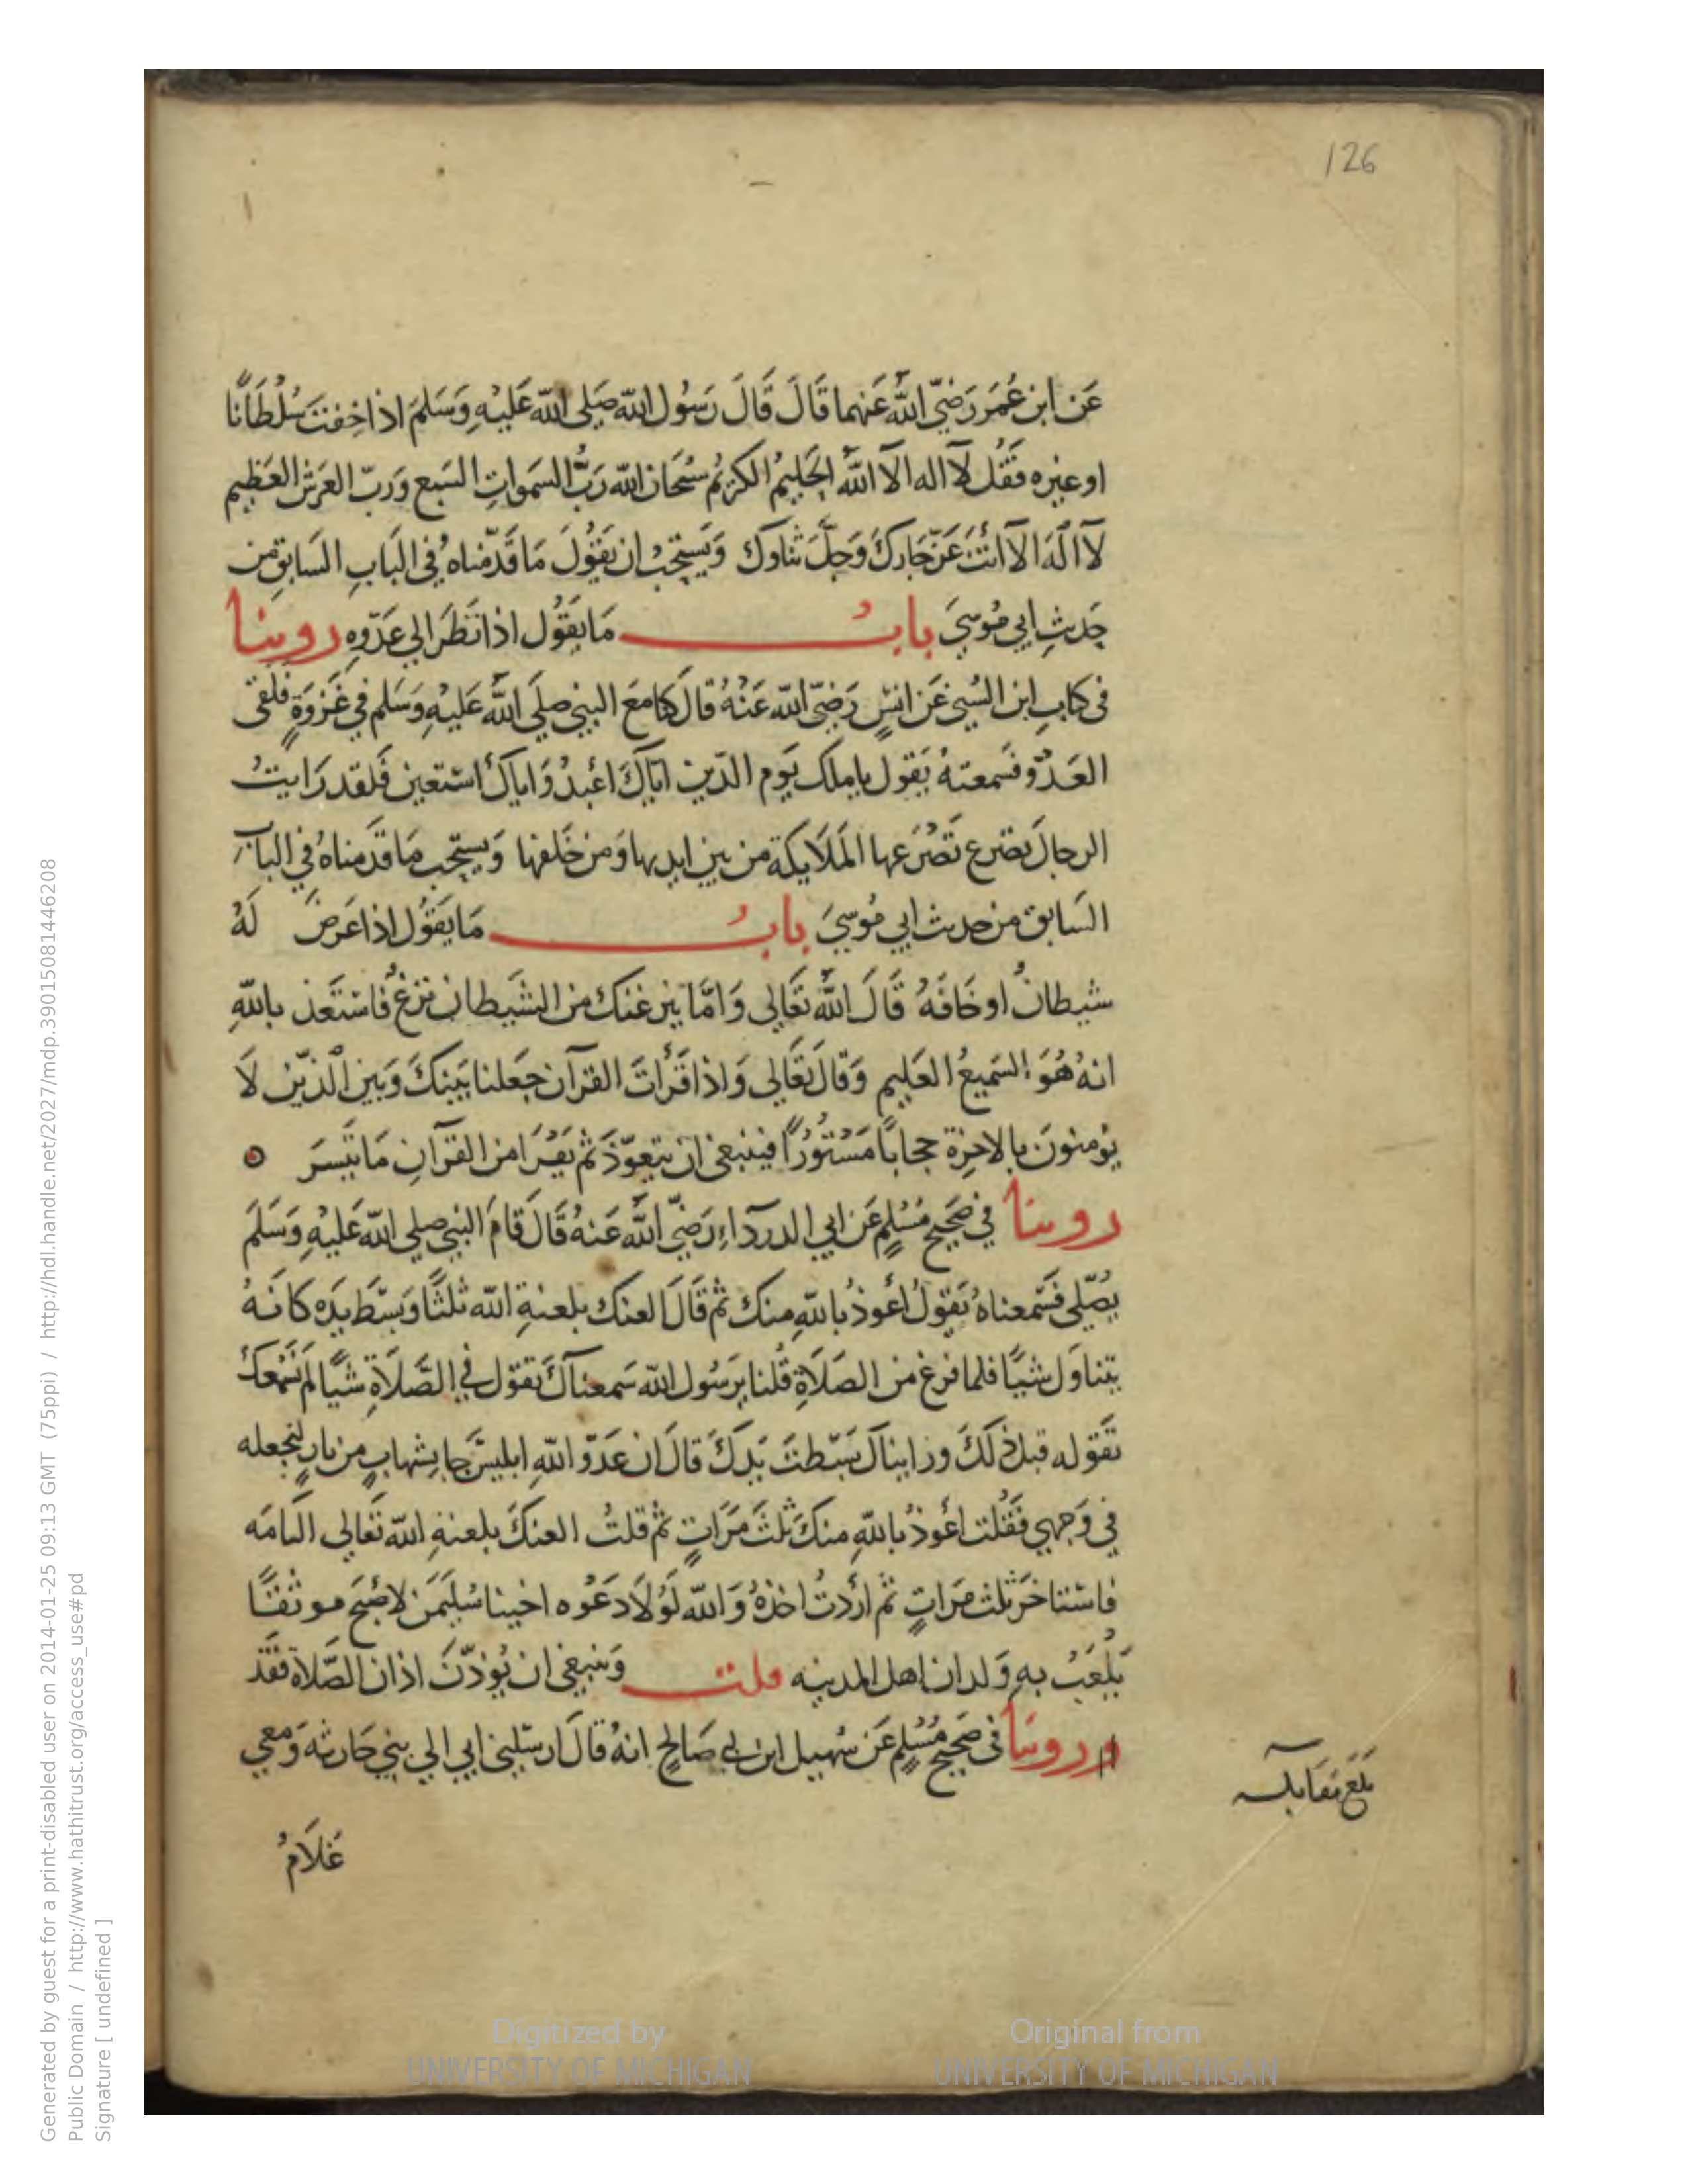 126
عَن ابن عُمَرَ رَضِيَ اللَّه عَنهما قَالَ قَالَ رَسُول اللّه صَلى اللّه عَليْهِ وَسَلمَ اذا خِفتَ سُلْطَانًا
او غيره فَقُل لآ اله الآ اللَّه الحَليمُ الكريمُ سُبْحَان اللّه رَبُّ السَموات السَبع وَربّ العَرش العَظيم
لآ الَهَ الآ انْتَ عَزّ جَارك وَجلَّ ثناوك وَيَستحبُ ان يَقُولَ مَا قدّمْناهُ في البَابِ السَابق من
حَديثِ ابي مُوسيَ بابُ مَا يَقُول اذا نَظَرَ الي عَدّوهِ روينا
في كتاب ابن السُني عَن انسٍ رَضيَ اللّه عَنْهُ قالَ كنا مَعَ النبي صلَي اللَّه عَليْهِ وَسَلم في غَزوَةٍ فلقى
العَدُوّ فسَمعتهُ يَقول يا ملك يَوم الدّين ايّاكَ اعْبدُ وَاياك اسْتعين فَلقد رَايتُ
الرجالَ تصرع تَصْرَعها المَلَايكة من بين ايديها وَمن خَلفها وَيستحب مَا قدَمناهُ في الباب
السَابق من حديث ابي مُوسيَ بابُ مَا يَقُول اذا عَرضَ لَهُ
شيطانُ او خَافَهُ قَالَ اللَّه تعَالي وَامَّا ينزغنك من الشَيطان نزغٌ فَاسْتَعذ باللّهِ
انهُ هُوَ السَميعُ العَليم وَقالَ تعَالي وَاذا قَرأتَ القرآن جَعلنا بَينكَ وَبين الَّذيْن لَا
يؤمنونَ بالاخرَة حجابًا مَسْتُورًا فينبغي ان يتعوّذَ ثم يَقْرَا من القرآنِ مَا تيَسرَ
روينا في صَحيح مُسْلمٍ عَن ابي الدردَاءِ رَضيَ اللَّه عَنهُ قَالَ قَامَ النبي صلي اللّه عَليْهِ وَسَلَمَ
يُصَلّي فَسَمعناهُ يَقولُ اعُوذُ باللّهِ منكَ ثم قَالَ العنك بلعنةِ اللّه ثلثًا وَبسَط يدَه كانهُ
يتناوَل شيًا فلما فرغ من الصَلَاةِ قُلنا يرَسُول اللّه سَمعناكَ تقول في الصَّلَاةِ شيًا لم نَسْمعكَ
تَقوله قبل ذلَكَ ورايناكَ بَسَطتَ يَدكَ قالَ ان عَدوّ اللّهِ ابليسَ جا بشهابٍ من نارٍ ليجعله
في وَجهي فَقُلت اعُوذُ باللّهِ منكَ ثلثَ مَرَاتٍ ثم قلتُ العنكَ بلعنةِ اللّه تعَالي التامَه
فاسْتاخرَ ثلث مرَاتٍ ثم ارَدتُ اخذهُ وَاللّه لَوْلَا دَعْوه اخينا سُلَيمَن لاصْبَح موثقًا
يَلْعَبُ بهِ وَلدان اهل المدينه قلت وَينبغي ان يُوذّنَ اذان الصَّلاة فَقَد
وروينا في صَحيح مُسْلمٍ عَن سُهيل ابن ابي صَالح انهُ قَالَ ارسَلني ابي الي بني حَارثه وَمَعي
غلَامُ
بلغ مقابله
Generated by guest for a print-disabled user on 2014-01-25 09:13 GMT (75ppi) / http://hdl.handle.net/2027/mdp.39015081446208
Public Domain / http://www.hathitrust.org/access_use#pd
Signature [ undefined ]
Digitized by
UNIVERSITY OF MICHIGAN
Original from
UNIVERSITY OF MICHIGAN